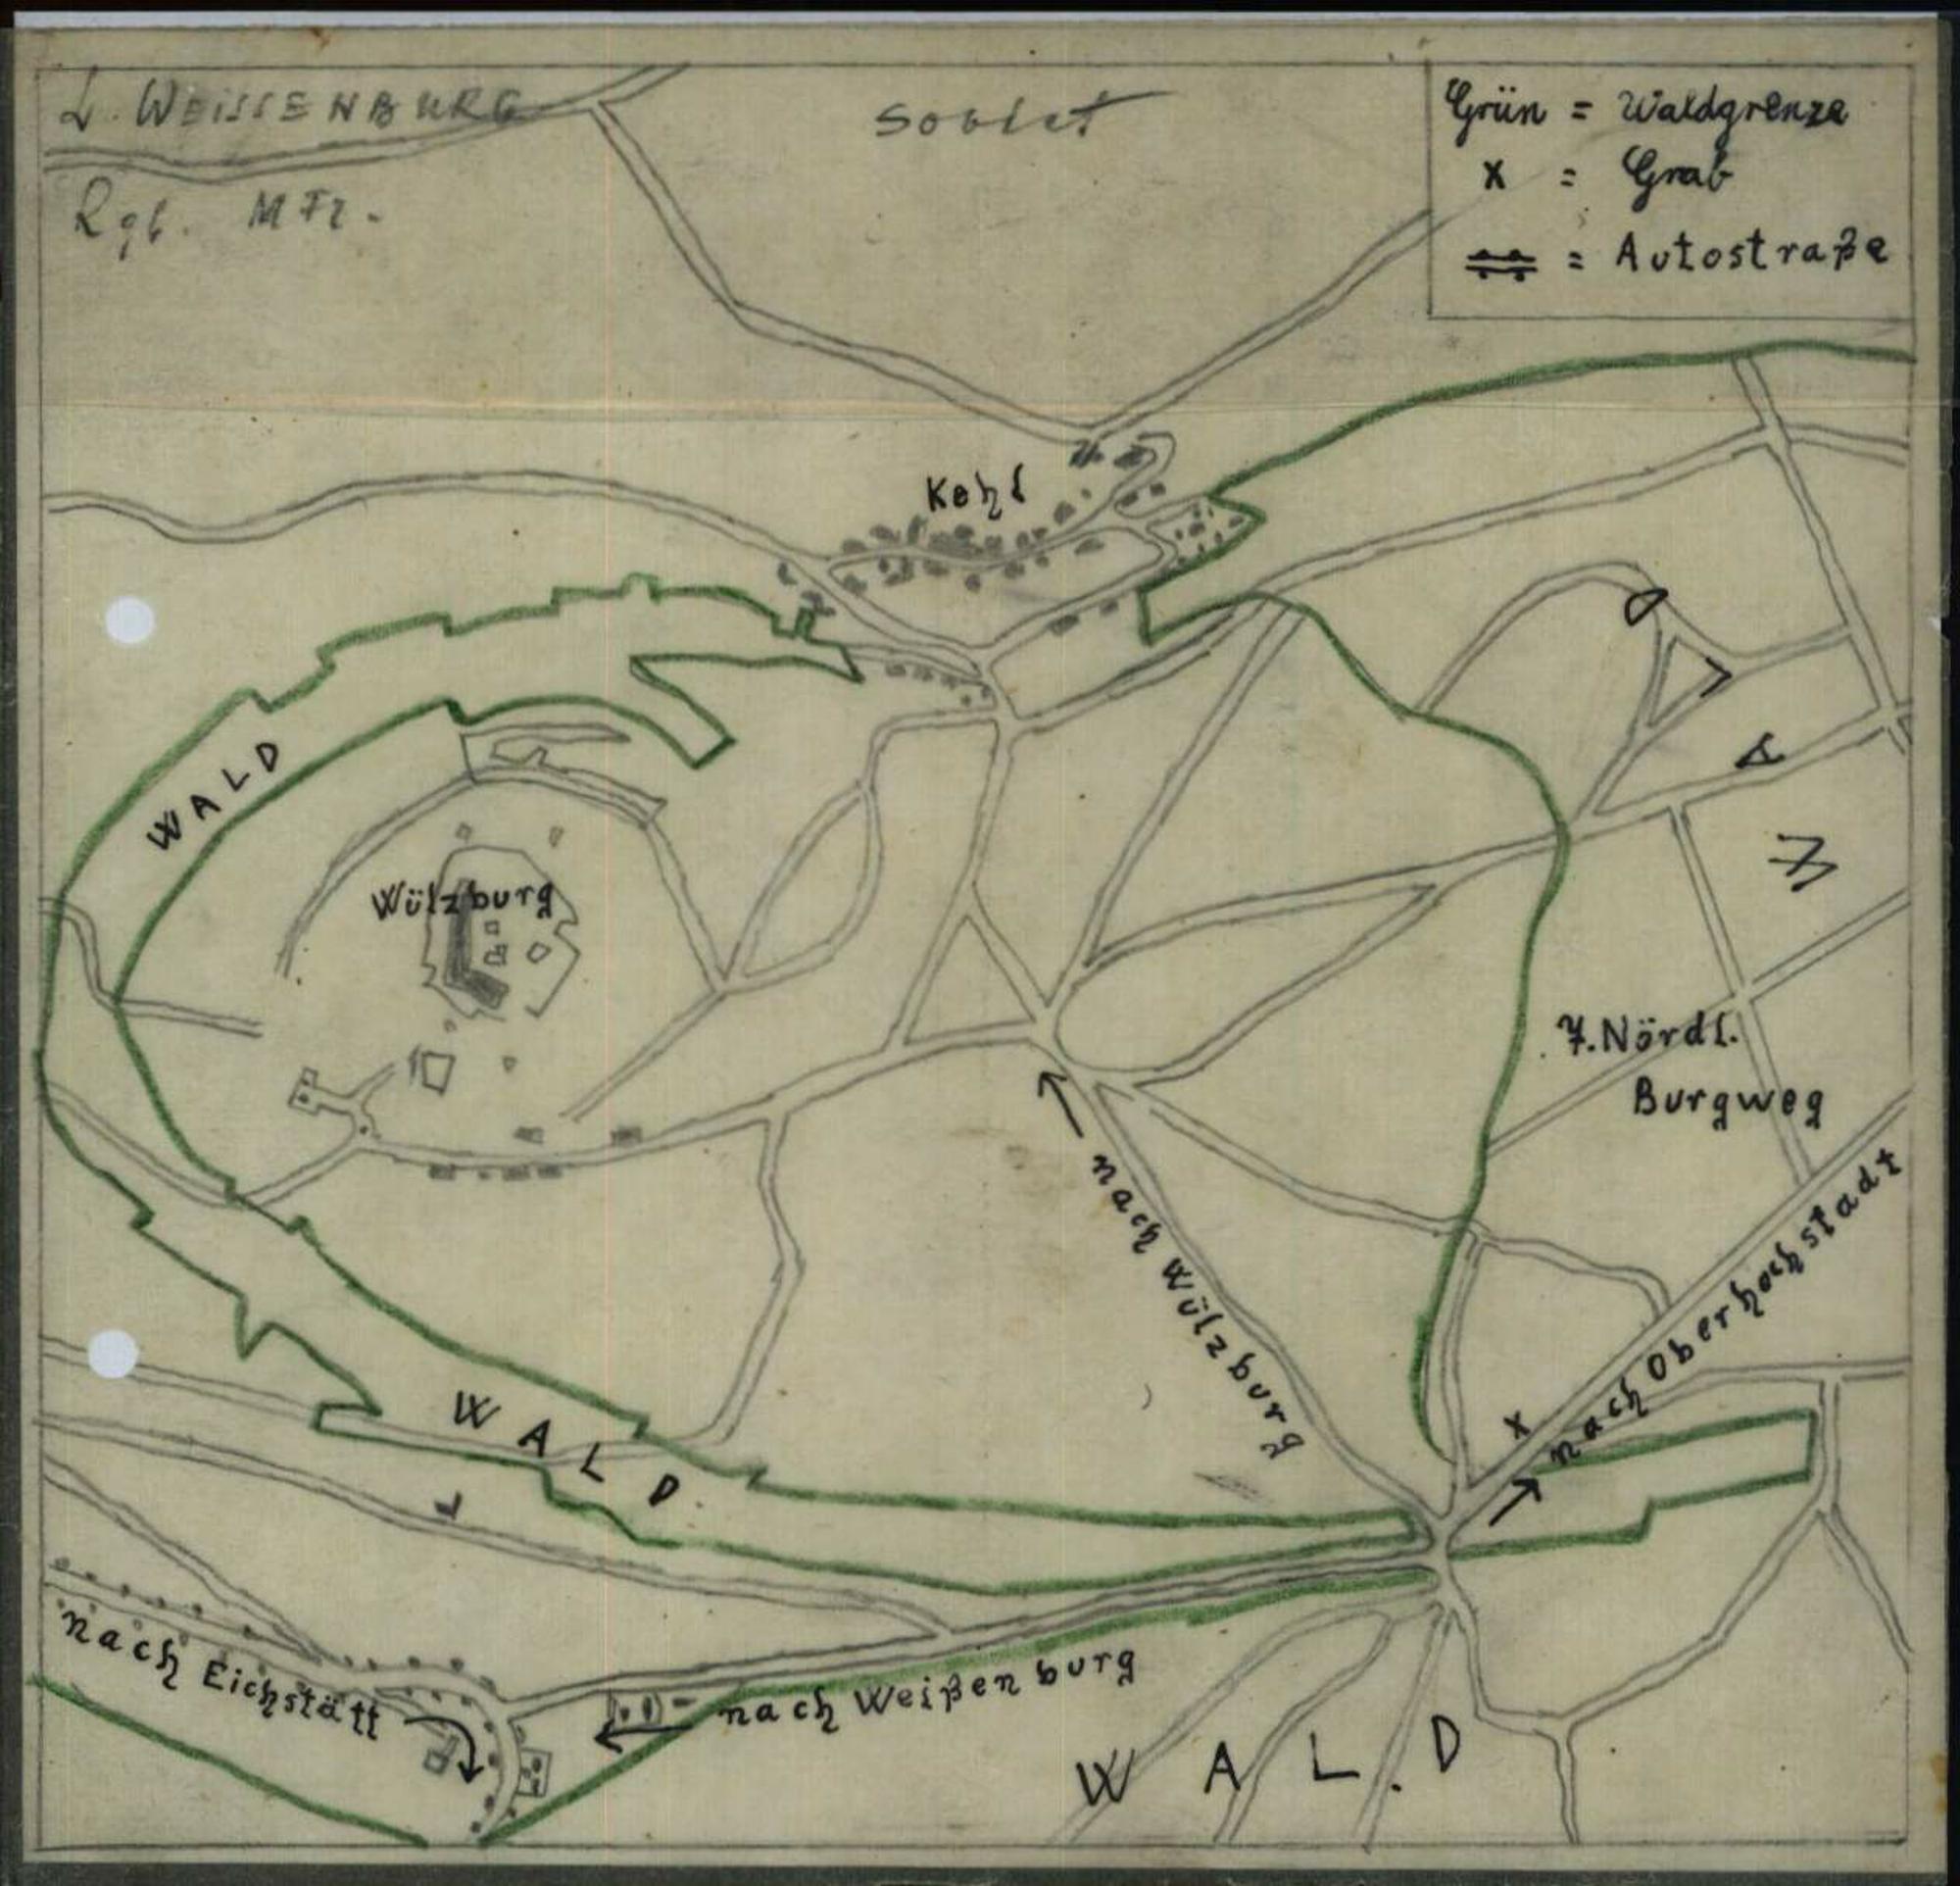 L. WEISSENBURG
Rgb. MFr.
Soviet
Grün = Waldgrenze
x = Grab
= Autostraße
Kehl
WALD
Wülzburg
WALD
7. Nördl.
Burgweg
nach Wülzburg
nach Oberhochstadt
x
WALD
nach Eichstätt
nach Weißenburg
WALD